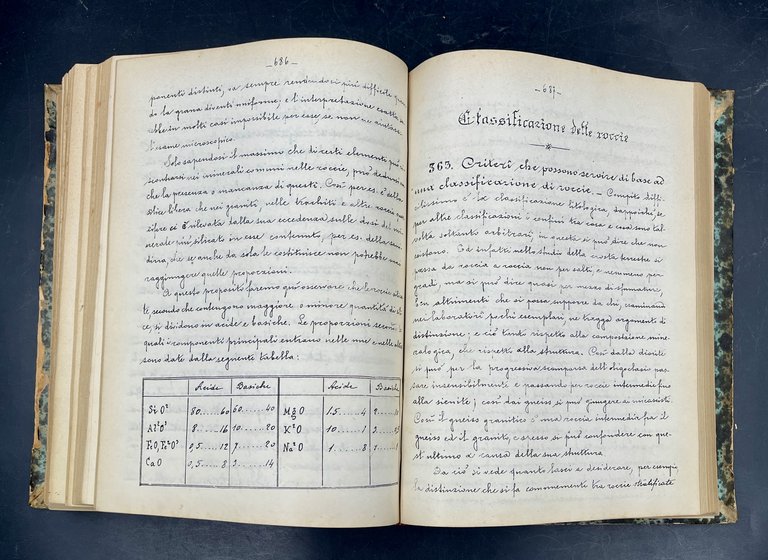 — 686 —
ponenti distinti, va sempre rendendosi più difficile quan-
do la grana diventi uniforme, e l'interpretazione esatta
sarebbe in molti casi impossibile per esse, se non ne aiutasse
l'esame microscopico.
Solo sapendosi il massimo che di certi elementi può in-
contrarsi nei minerali comuni nelle roccie, può dedursi an-
che la presenza o mancanza di questi. Così per es. è della
silice libera che nei graniti, nelle trachiti e altre roccie
silice ci è rivelata dalla sua eccedenza sulle dosi del mi-
nerale più silicato in esse contenuto, per es. della sani-
dina, che se anche da sola le costituisse non potrebbe mai
raggiungere quelle proporzioni.
A questo proposito faremo qui osservare che le roccie silica-
te, secondo che contengono maggiore o minore quantità di sili-
ce, si dividono in acide e basiche. Le proporzioni secondo
quali i componenti principali entrano nelle une e nelle altre
sono dati dalla seguente tabella:
Acide Basiche Acide Basiche
SiO² 80.....60 60.....40 MgO 1.5.....4 2
Al²O³ 8.....16 10.....20 K²O 10.....1 3
FeO, Fe²O³ 0,5.....12 7.....20 Na²O 1.....8 1
CaO 0,5.....8 3.....14
— 687 —
Classificazione delle roccie
363. Criteri che possono servire di base ad
una classificazione di roccie. — Compito diffi-
cilissimo è la classificazione litologica, dappoichè, se
per altre classificazioni i confini tra cosa e cosa sono tal-
volta soltanto arbitrari, in questa si può dire che non
esistono. Ed infatti nello studio della crosta terrestre si
passa da roccia a roccia non per salti, e nemmeno per
gradi, ma si può dire quasi per mezzo di sfumature,
ben altrimenti che si possa supporre da chi, esaminando
nei laboratori pochi esemplari, ne tragga argomenti di
distinzione; e ciò tanto rispetto alla composizione mine-
ralogica, che rispetto alla struttura. Così dalla diorite
si può per la progressiva scomparsa dell'oligoclasio pas-
sare insensibilmente e passando per roccie intermedie fino
alla sienite; così dai gneiss si può giungere ai micascisti.
Così il gneiss granitico è una roccia intermedia fra il
gneiss ed il granito, e spesso si può confondere con que-
st'ultimo a causa della sua struttura.
Da ciò si vede quanto lasci a desiderare, per esempio,
la distinzione che si fa comunemente tra roccie stratificate